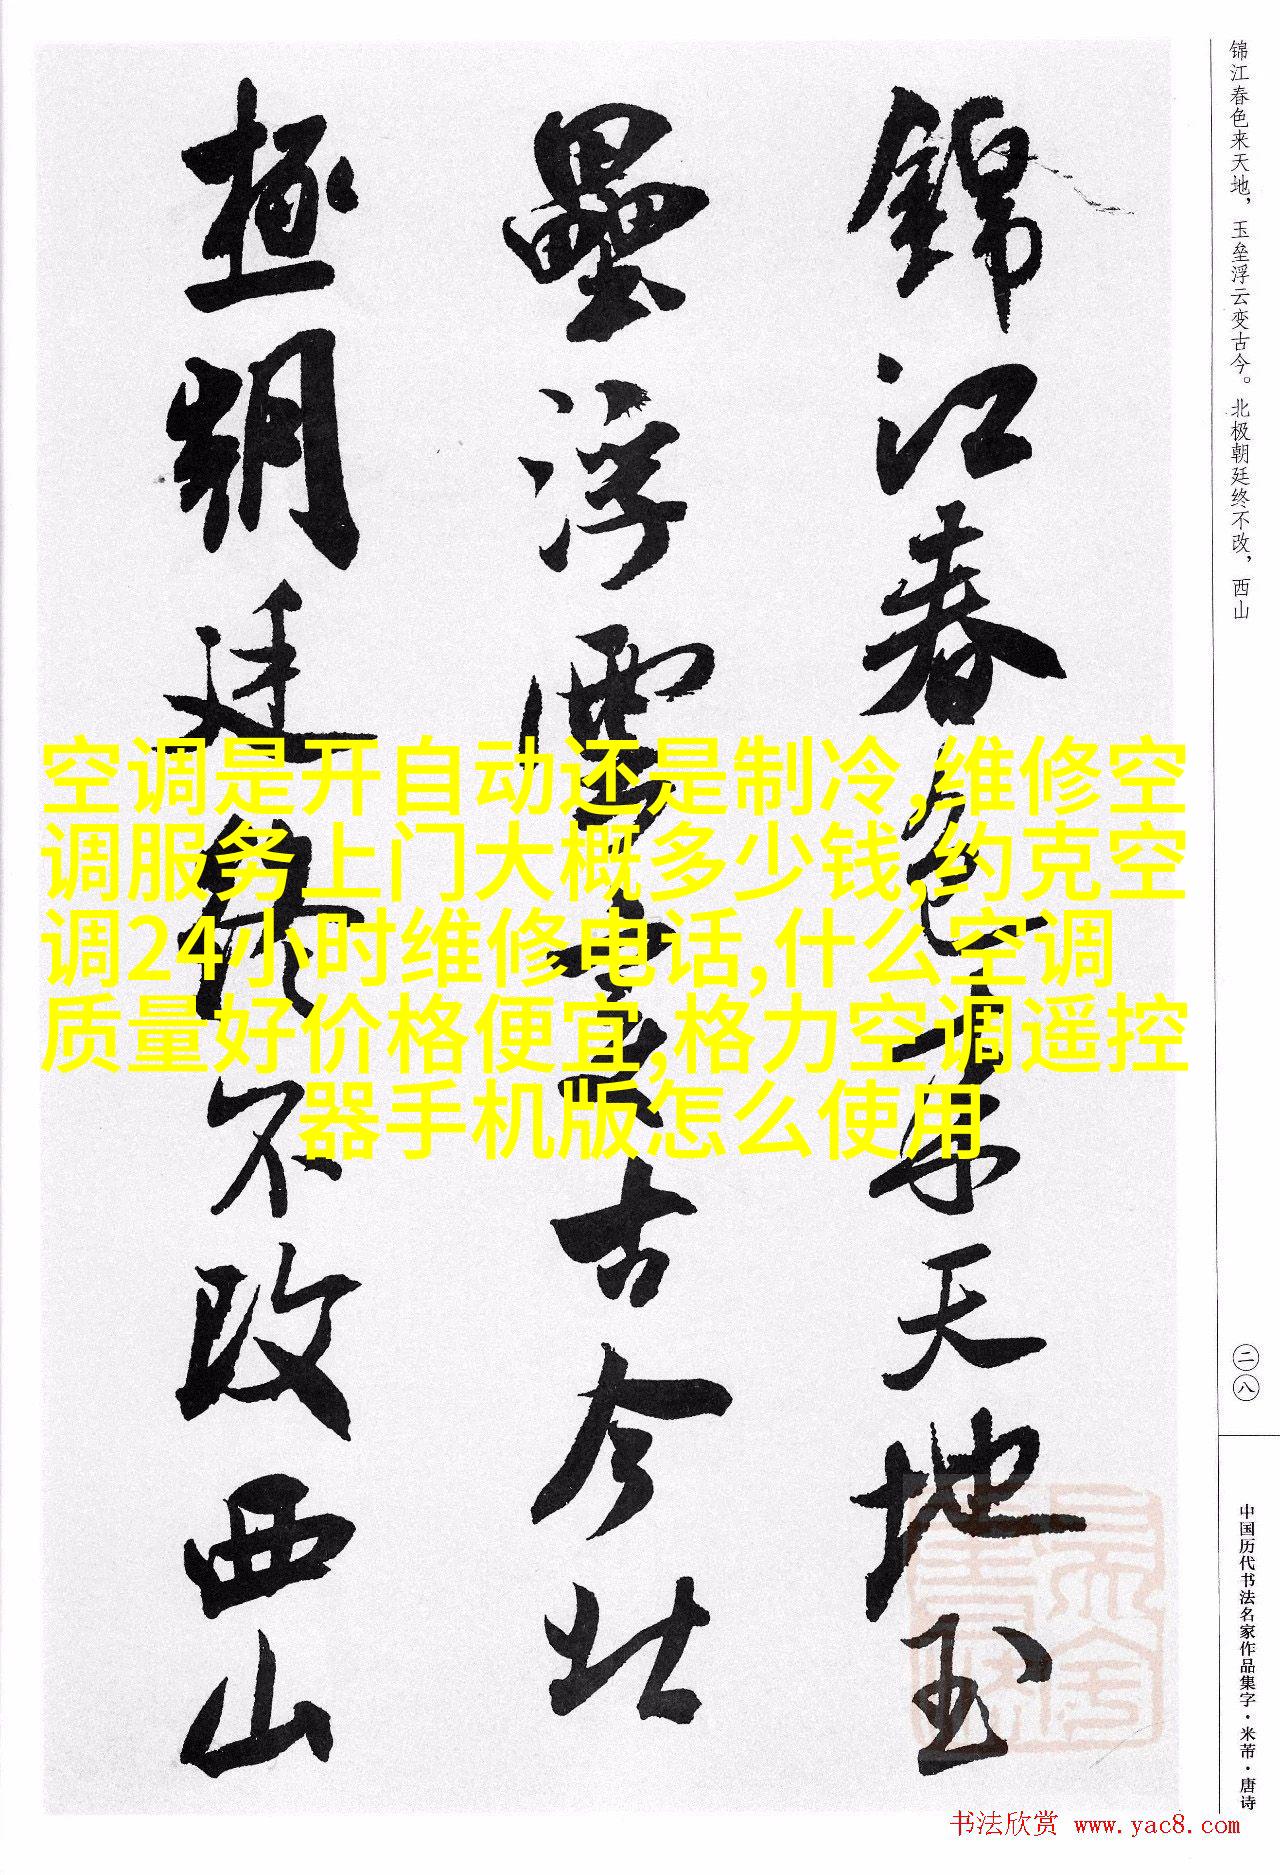 锦江春色来天地，玉垒浮云变古今。北极朝廷终不改，西山
錦江春色来天地玉
壘浮雲變古今北
極朝廷終不改西山
空调是开自动还是制冷,维修空
调服务上门大概多少钱,约克空
调24小时维修电话,什么空调
质量好价格便宜,格力空调遥控
器手机版怎么使用
二八
中国历代书法名家作品集字·米芾·唐诗
书法欣赏 www.yac8.com